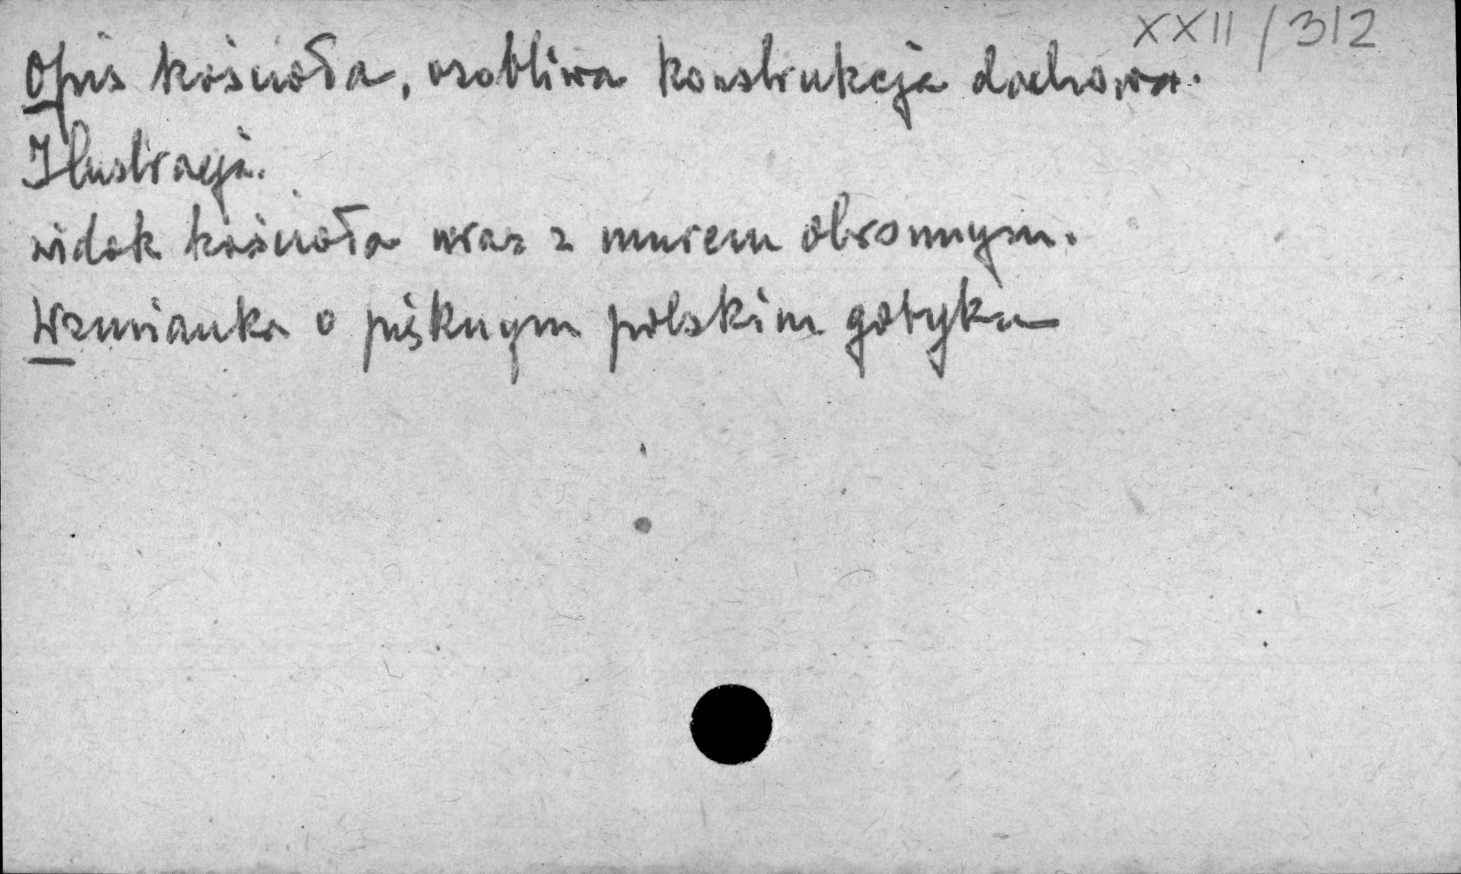 XXII / 312
Opis kościoła, osobliwa konstrukcja dachowa.
Ilustracja.
widok kościoła wraz z murem obronnym.
Wzmianka o pięknym polskim gotyku